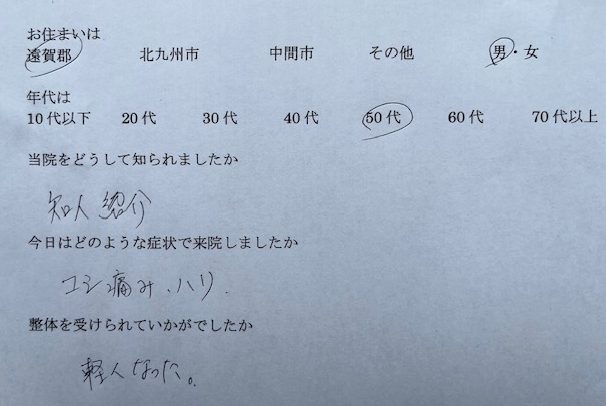 お住まいは
遠賀郡 北九州市 中間市 その他 男・女
年代は
10代以下 20代 30代 40代 50代 60代 70代以上
当院をどうして知られましたか
知人 紹介
今日はどのような症状で来院しましたか
コシ痛み、ハリ.
整体を受けられていかがでしたか
軽くなった。